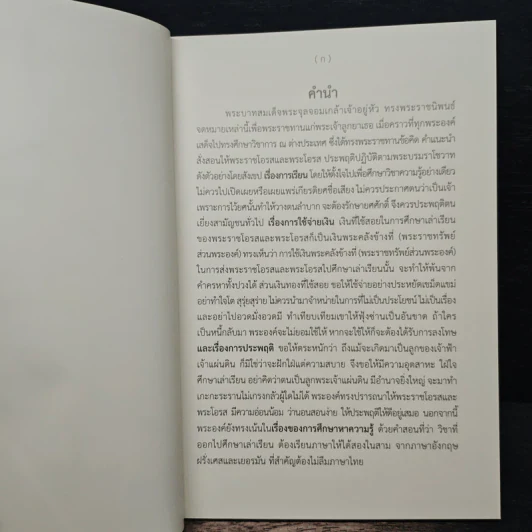 ( ก )
คำนำ
พระบาทสมเด็จพระจุลจอมเกล้าเจ้าอยู่หัว ทรงพระราชนิพนธ์
จดหมายเหล่านี้เพื่อพระราชทานแก่พระเจ้าลูกยาเธอ เมื่อคราวที่ทุกพระองค์
เสด็จไปทรงศึกษาวิชาการ ณ ต่างประเทศ ซึ่งได้ทรงพระราชทานข้อคิด คำแนะนำ
สั่งสอนให้พระราชโอรสและพระโอรส ประพฤติปฏิบัติตามพระบรมราโชวาท
ดังตัวอย่างโดยสังเขป เรื่องการเรียน โดยให้ตั้งใจไปเพื่อศึกษาวิชาความรู้อย่างเดียว
ไม่ควรไปเปิดเผยหรือเผยแพร่เกียรติยศชื่อเสียง ไม่ควรประกาศตนว่าเป็นเจ้า
เพราะการไว้ยศนั้นทำให้วางตนลำบาก จะต้องรักษายศศักดิ์ จึงควรประพฤติตน
เยี่ยงสามัญชนทั่วไป เรื่องการใช้จ่ายเงิน เงินที่ใช้สอยในการศึกษาเล่าเรียน
ของพระราชโอรสและพระโอรสก็เป็นเงินพระคลังข้างที่ (พระราชทรัพย์
ส่วนพระองค์) ทรงเห็นว่า การใช้เงินพระคลังข้างที่ (พระราชทรัพย์ส่วนพระองค์)
ในการส่งพระราชโอรสและพระโอรสไปศึกษาเล่าเรียนนั้น จะทำให้พ้นจาก
คำครหาทั้งปวงได้ ส่วนเงินทองที่ใช้สอย ขอให้ใช้จ่ายอย่างประหยัดเขม็ดแขม่
อย่าทำใจโต สุรุ่ยสุร่าย ไม่ควรนำมาจำหน่ายในการที่ไม่เป็นประโยชน์ ไม่เป็นเรื่อง
และอย่าไปอวดมั่งอวดมี ทำเทียบเทียมเขาให้ฟุ้งซ่านเป็นอันขาด ถ้าใคร
เป็นหนี้กลับมา พระองค์จะไม่ยอมใช้ให้ หากจะใช้ให้ก็จะต้องได้รับการลงโทษ
และเรื่องการประพฤติ ขอให้ตระหนักว่า ถึงแม้จะเกิดมาเป็นลูกของเจ้าฟ้า
เจ้าแผ่นดิน ก็มิใช่ว่าจะฝักใฝ่แต่ความสบาย จึงขอให้มีความอุตสาหะ ใฝ่ใจ
ศึกษาเล่าเรียน อย่าคิดว่าตนเป็นลูกพระเจ้าแผ่นดิน มีอำนาจยิ่งใหญ่ จะมาทำ
เกะกะระรานไม่เกรงกลัวผู้ใดไม่ได้ พระองค์ทรงปรารถนาให้พระราชโอรสและ
พระโอรส มีความอ่อนน้อม ว่านอนสอนง่าย ให้ประพฤติให้ดีอยู่เสมอ นอกจากนี้
พระองค์ยังทรงเน้นในเรื่องของการศึกษาหาความรู้ ด้วยคำสอนที่ว่า วิชาที่
ออกไปศึกษาเล่าเรียน ต้องเรียนภาษาให้ได้สองในสาม จากภาษาอังกฤษ
ฝรั่งเศสและเยอรมัน ที่สำคัญต้องไม่ลืมภาษาไทย